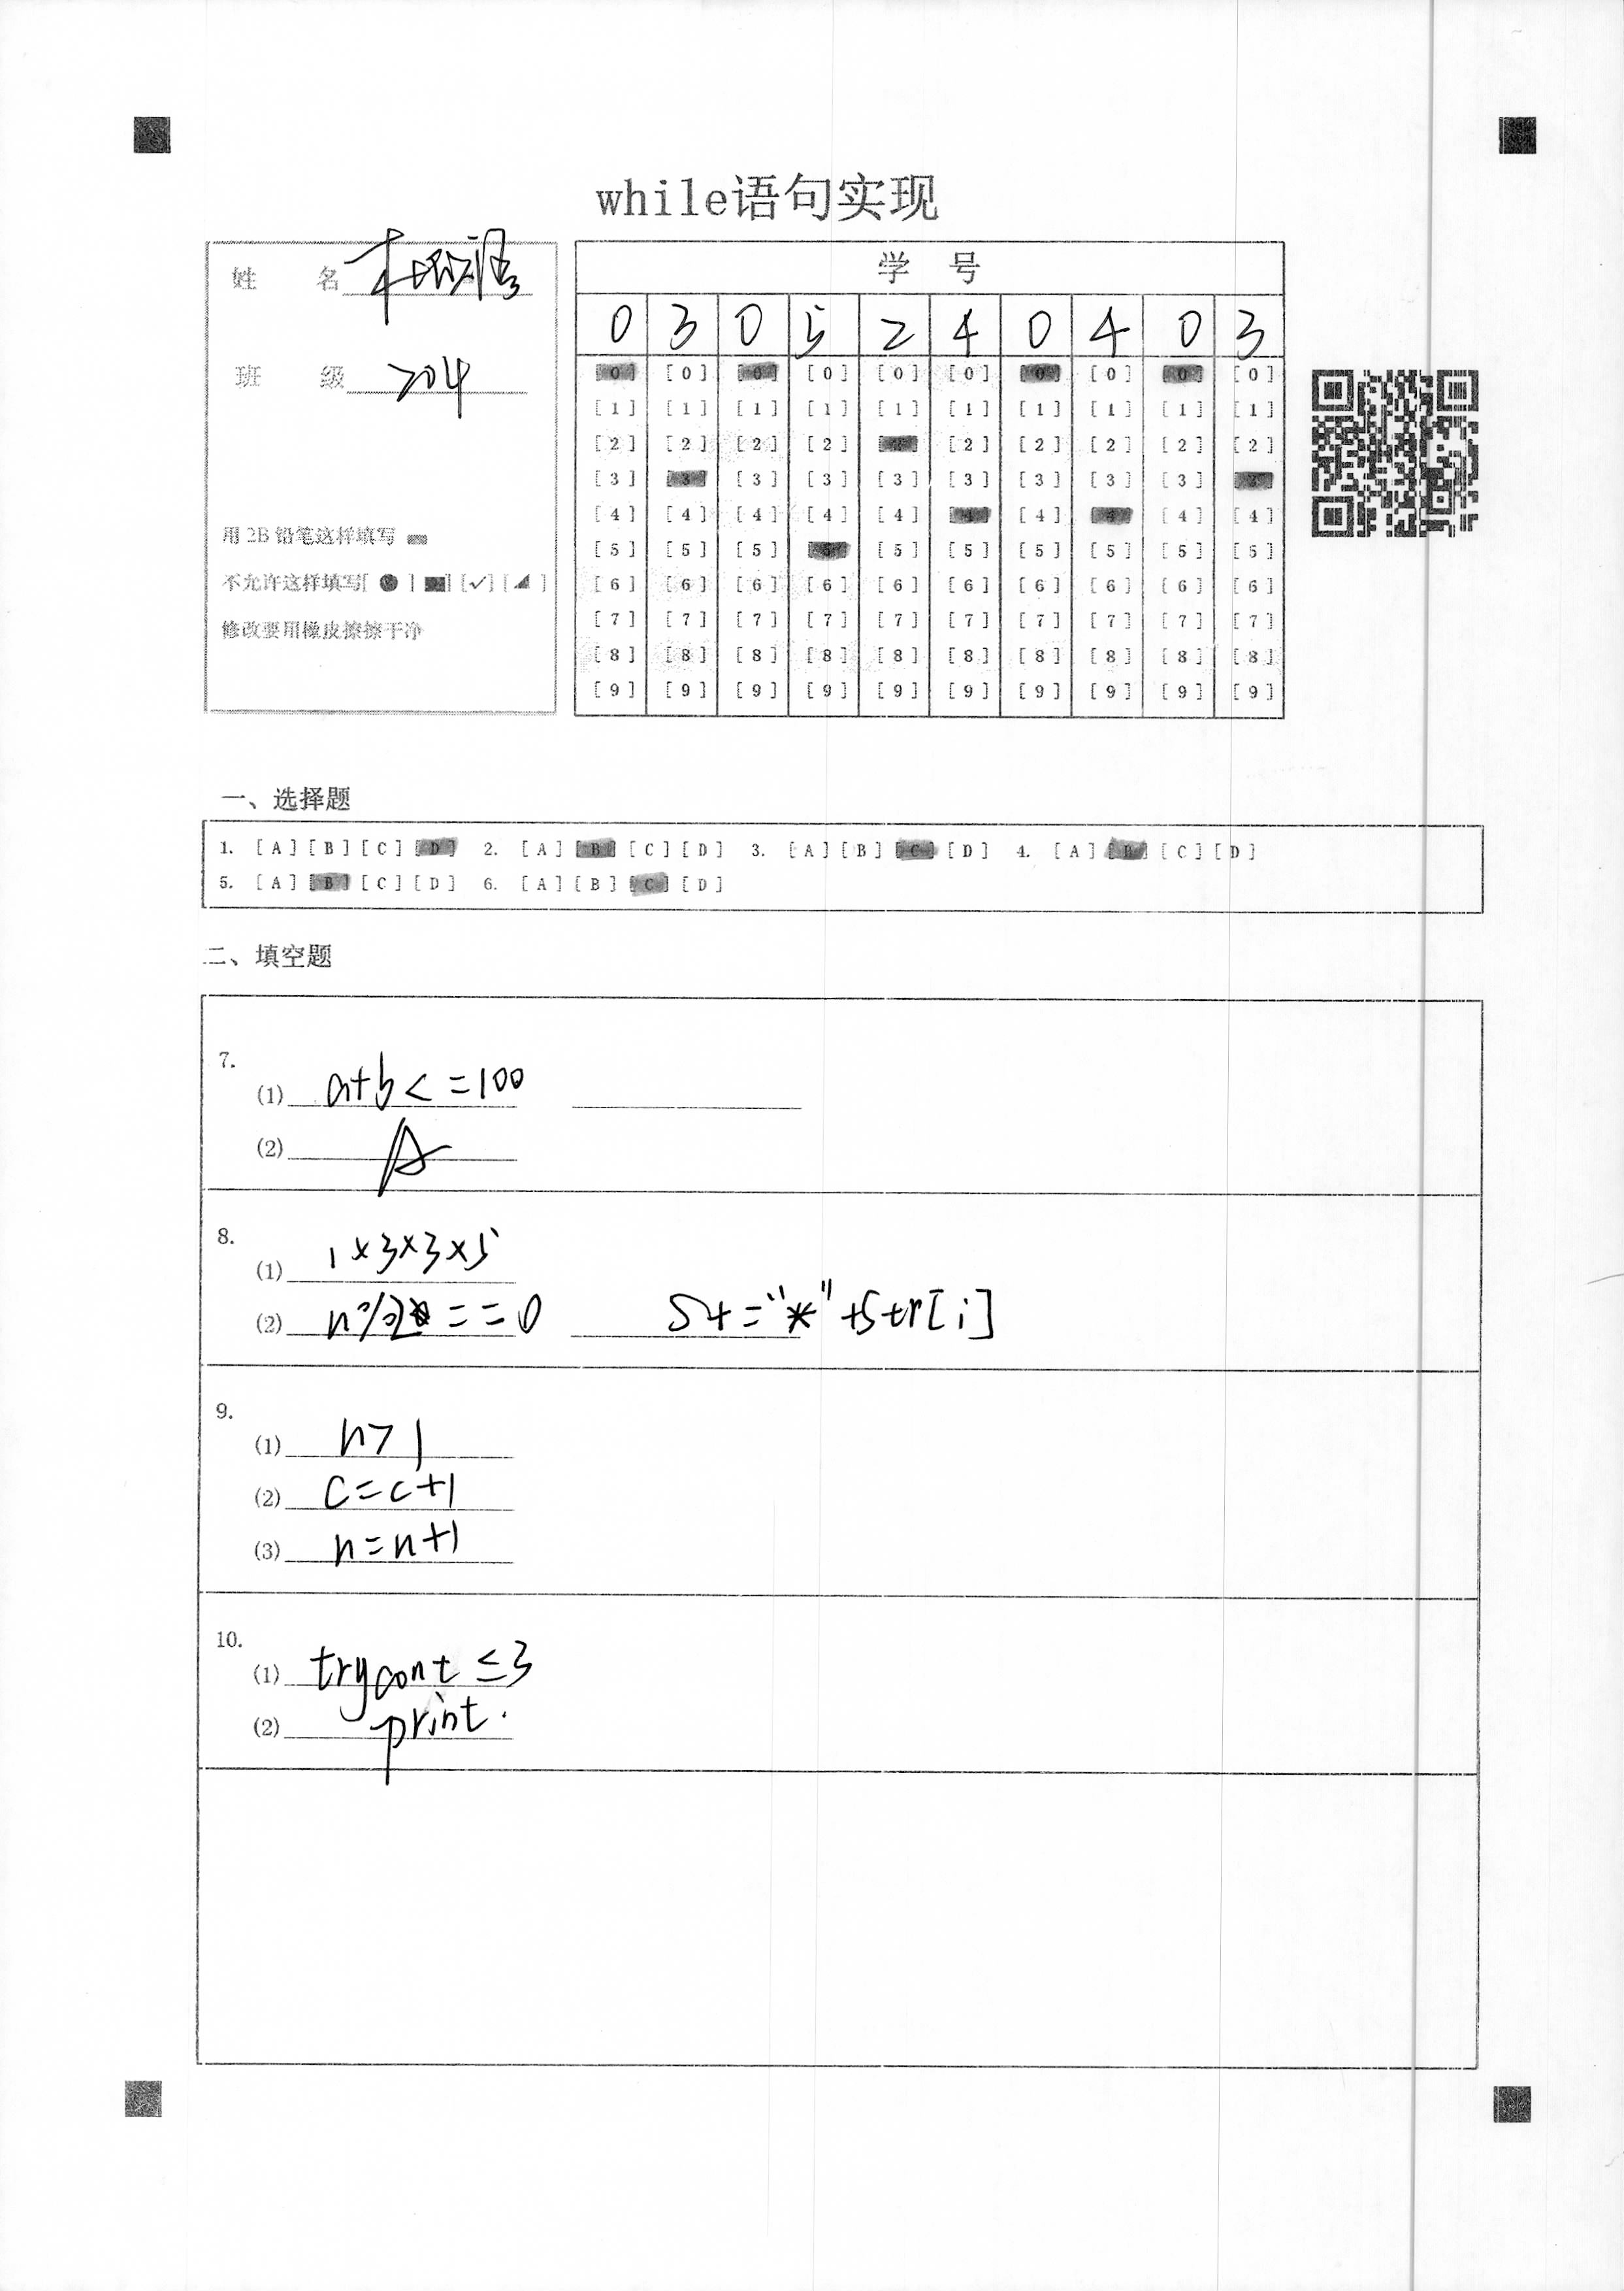 while语句实现
姓 名
班 级 204
用 2B 铅笔这样填写
不允许这样填写[ ● ] [■] [✓] [◢ ]
修改要用橡皮擦擦干净
学 号
0 3 0 5 2 4 0 4 0 3
[0] [0] [0] [0] [0] [0] [0] [0] [0] [0]
[1] [1] [1] [1] [1] [1] [1] [1] [1] [1]
[2] [2] [2] [2] [2] [2] [2] [2] [2] [2]
[3] [3] [3] [3] [3] [3] [3] [3] [3] [3]
[4] [4] [4] [4] [4] [4] [4] [4] [4] [4]
[5] [5] [5] [5] [5] [5] [5] [5] [5] [5]
[6] [6] [6] [6] [6] [6] [6] [6] [6] [6]
[7] [7] [7] [7] [7] [7] [7] [7] [7] [7]
[8] [8] [8] [8] [8] [8] [8] [8] [8] [8]
[9] [9] [9] [9] [9] [9] [9] [9] [9] [9]
一、选择题
1. [A] [B] [C] [D] 2. [A] [B] [C] [D] 3. [A] [B] [C] [D] 4. [A] [B] [C] [D]
5. [A] [B] [C] [D] 6. [A] [B] [C] [D]
二、填空题
7.
(1) a+b<=100
(2) A
8.
(1) 1×3×3×5
(2) n%2==0 St="*"+Str[i]
9.
(1) n>1
(2) c=c+1
(3) n=n+1
10.
(1) trycont ≤3
(2) print.